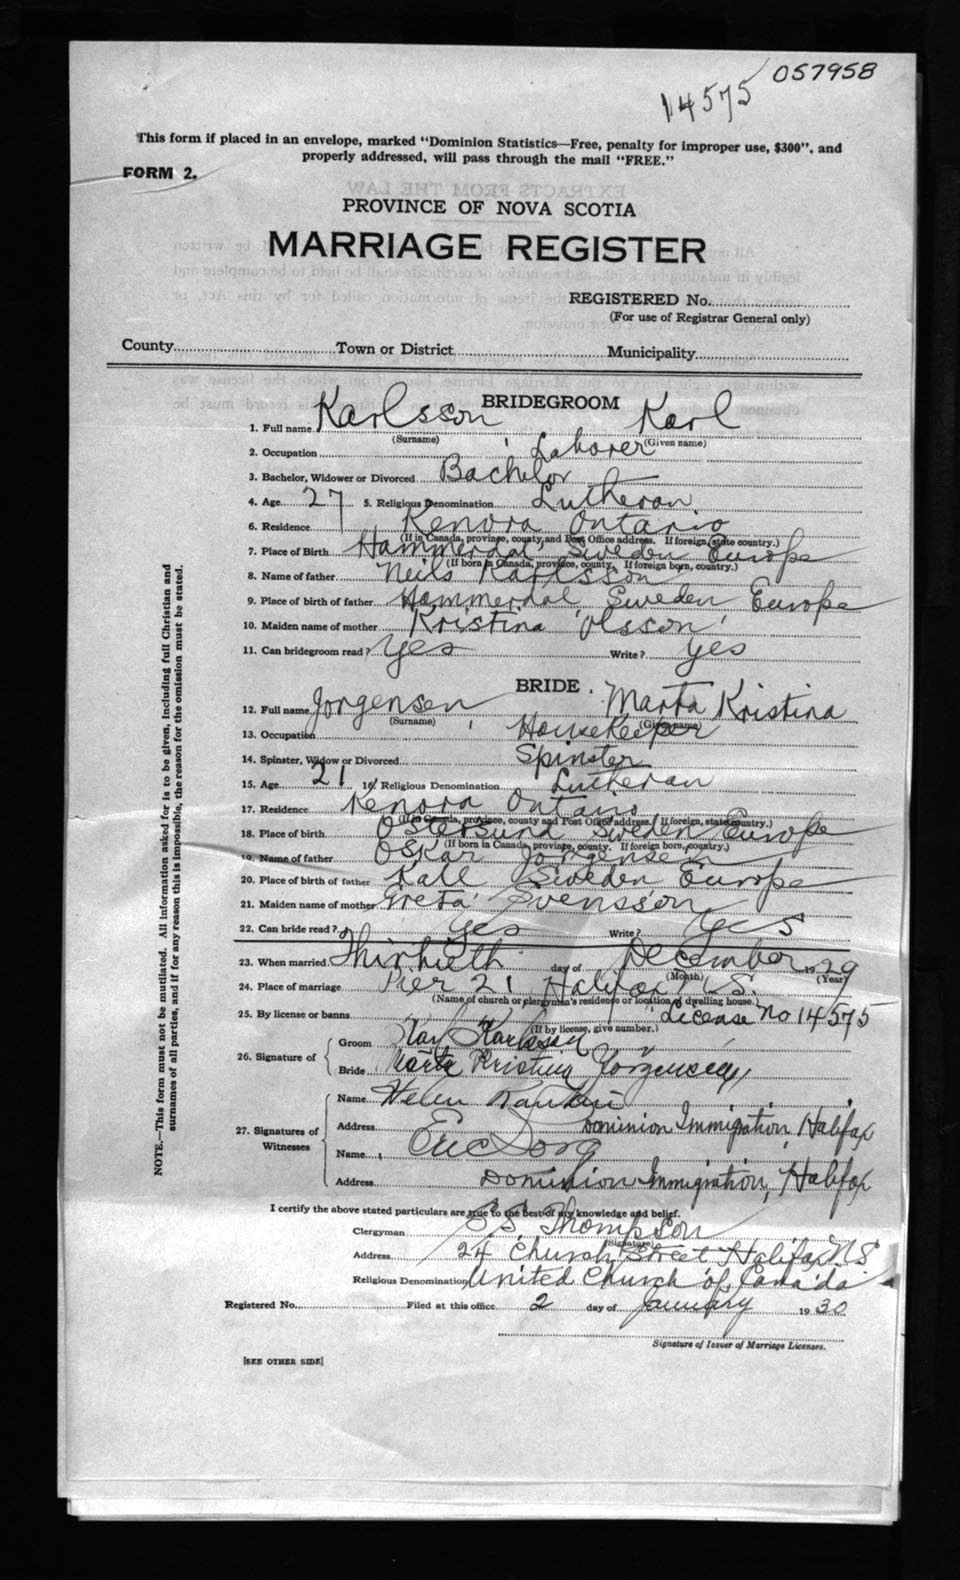 057958
14575
This form if placed in an envelope, marked "Dominion Statistics—Free, penalty for improper use, $300", and
properly addressed, will pass through the mail "FREE."
FORM 2.
PROVINCE OF NOVA SCOTIA
MARRIAGE REGISTER
REGISTERED No.
(For use of Registrar General only)
County Town or District Municipality
BRIDEGROOM
1. Full name Karlsson Karl
(Surname) (Given name)
2. Occupation Laborer
3. Bachelor, Widower or Divorced Bachelor
4. Age 27 5. Religious Denomination Lutheran
6. Residence Kenora Ontario
(If in Canada, province, county, and Post Office address. If foreign, state country.)
7. Place of Birth Hammerdal, Sweden Europe
(If born in Canada, province, county. If foreign born, country.)
8. Name of father Neils Karlsson
9. Place of birth of father Hammerdal Sweden Europe
10. Maiden name of mother Kristina Olsson
11. Can bridegroom read? Yes Write? yes
BRIDE.
12. Full name Jorgensen Marta Kristina
(Surname) (Given name)
13. Occupation HouseKeeper
14. Spinster, Widow or Divorced Spinster
15. Age 21 16. Religious Denomination Lutheran
17. Residence Kenora Ontario
(If in Canada, province, county and Post Office address. If foreign, state country.)
18. Place of birth Ostersund Sweden Europe
(If born in Canada, province, county. If foreign born, country.)
19. Name of father Oskar Jorgensen
20. Place of birth of father Kall Sweden Europe
21. Maiden name of mother Greta Svensson
22. Can bride read? yes Write? yes
23. When married Thirtieth day of December 1929
(Month) (Year)
24. Place of marriage Pier 21 Halifax N.S.
(Name of church or clergyman's residence or location of dwelling house.)
25. By license or banns License No 14575
(If by license, give number.)
26. Signature of Groom Karl Karlsson
Bride Märta Kristina Jörgensen
27. Signatures of Witnesses
Name Helen
Address Dominion Immigration, Halifax
Name Eric
Address Dominion Immigration, Halifax
I certify the above stated particulars are true to the best of my knowledge and belief.
Clergyman Thompson
(Signature)
Address 24 Church Street Halifax N.S.
Religious Denomination United Church of Canada
Registered No. Filed at this office 2 day of January 1930
Signature of Issuer of Marriage Licenses.
[SEE OTHER SIDE]
NOTE.—This form must not be mutilated. All information asked for is to be given, including full Christian and
surnames of all parties, and if for any reason this is impossible, the reason for the omission must be stated.